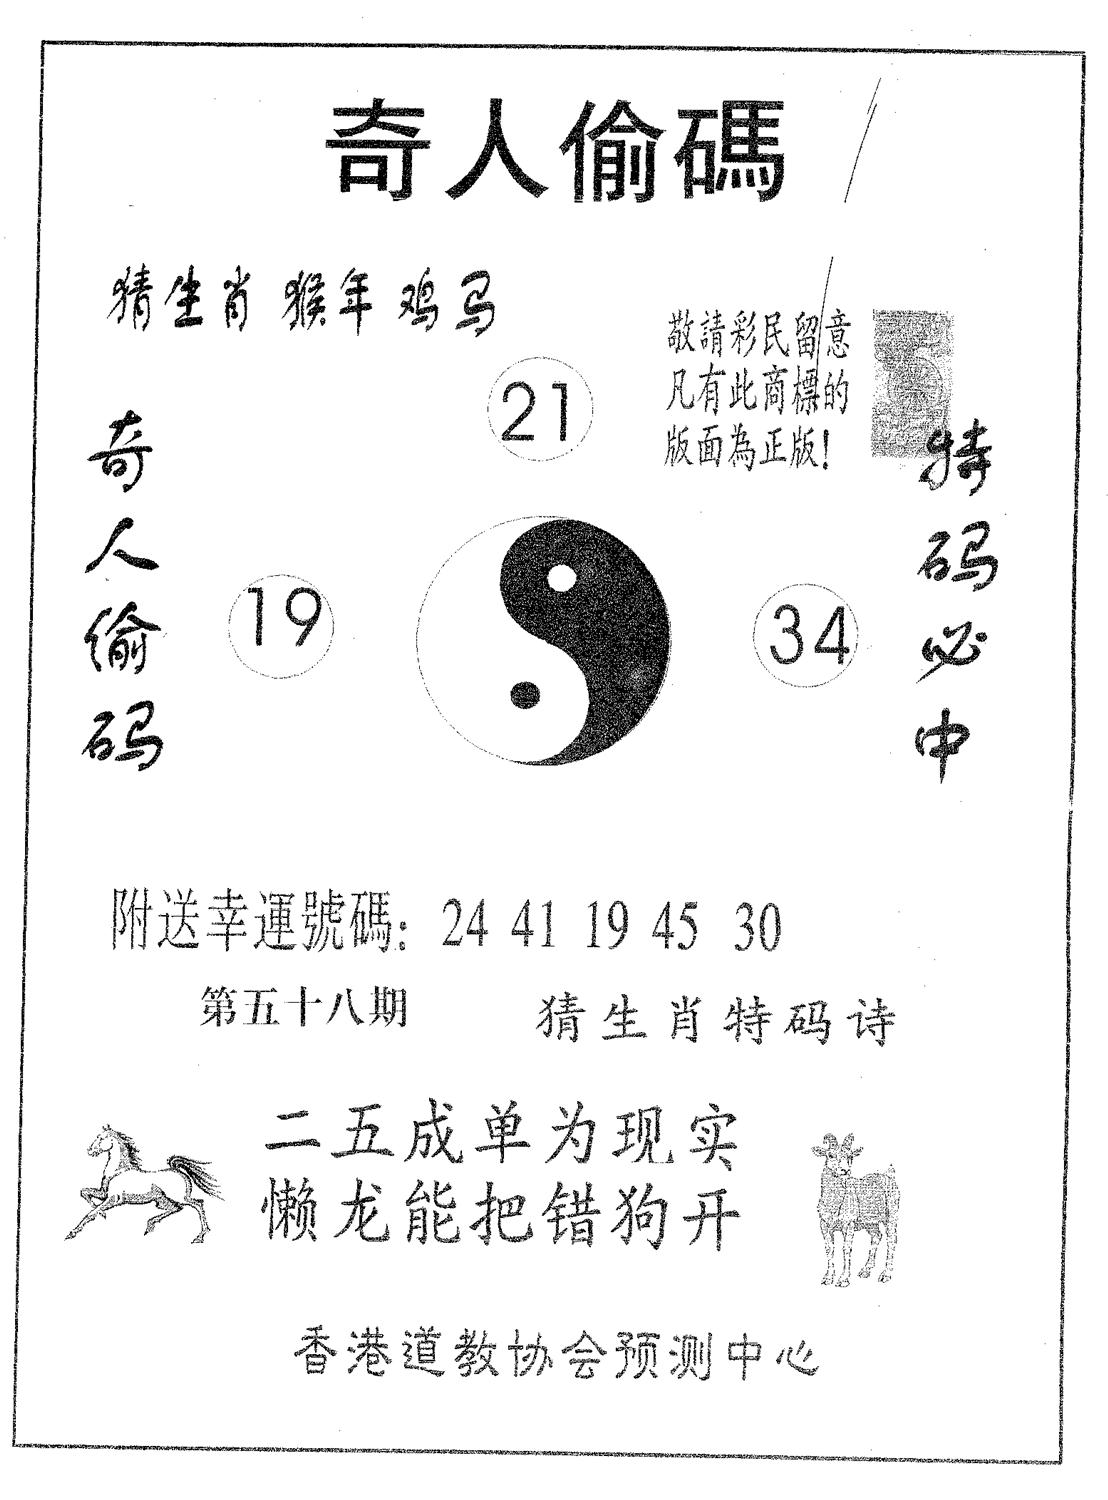 奇人偷碼
猜生肖 猴年 鸡马
敬請彩民留意
凡有此商標的
版面為正版！
21
奇人偷码
19
34
特码必中
附送幸運號碼：24 41 19 45 30
第五十八期
猜生肖特码诗
二五成单为现实
懒龙能把错狗开
香港道教协会预测中心